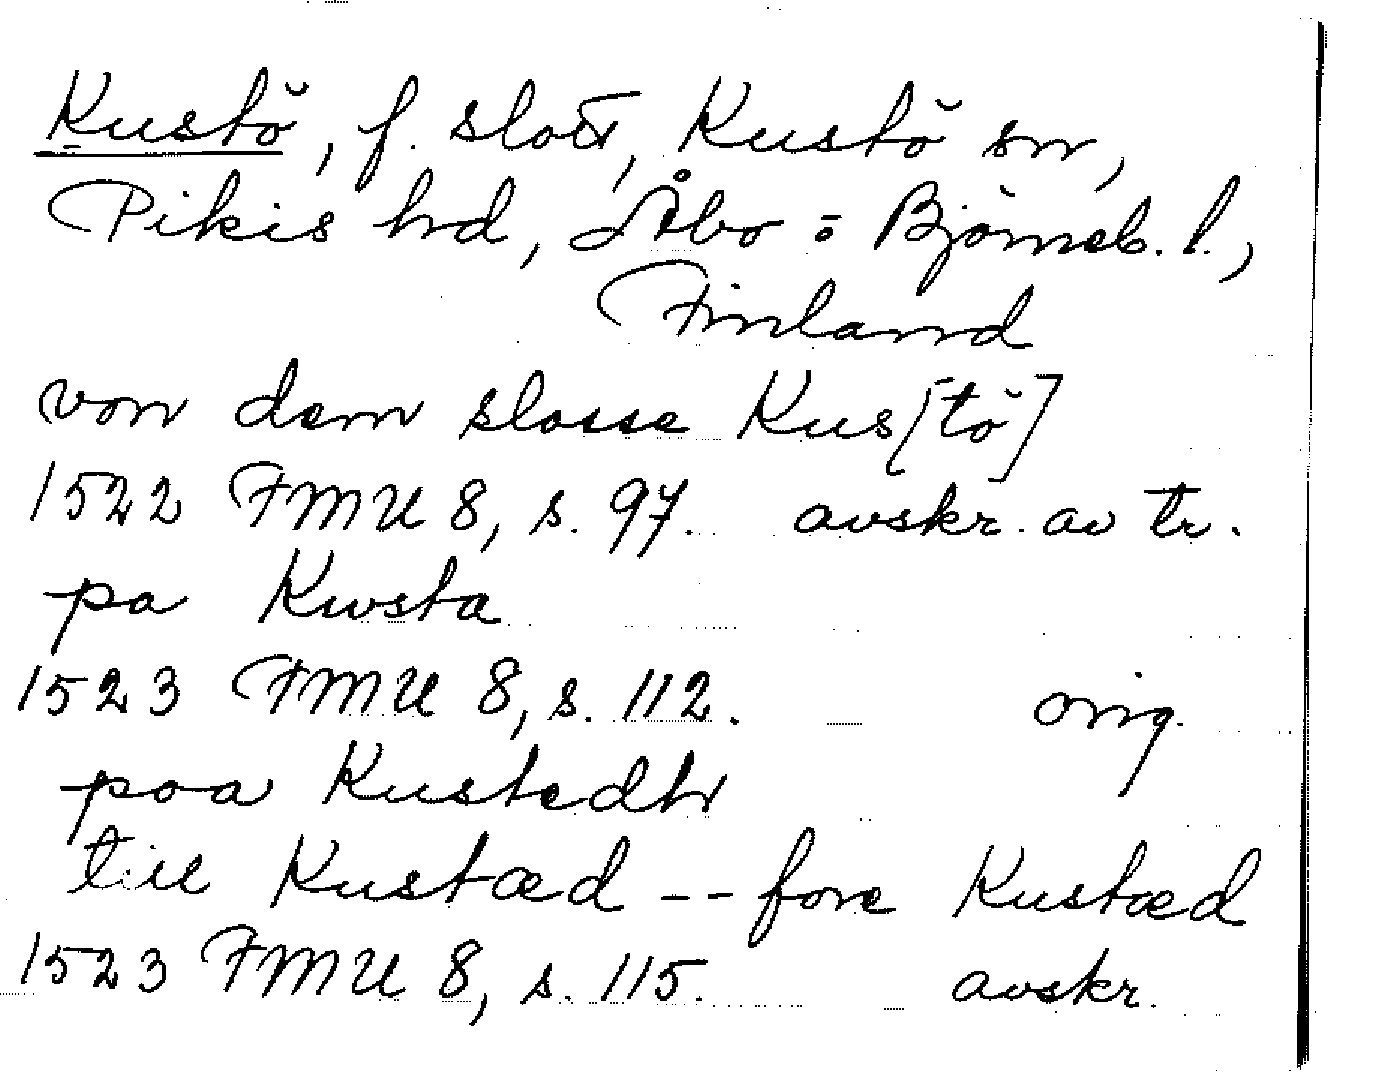 Kustö, f. slott, Kustö sn,
Pikis hd, Åbo = Björneb. l.,
Finland
von dem slosse Kus[tö]
1522 FMU 8, s. 97. avskr. av tr.
pa Kwsta
1523 FMU 8, s. 112. orig.
poa Kustedh
till Kustæd -- fore Kustæd
1523 FMU 8, s. 115. avskr.